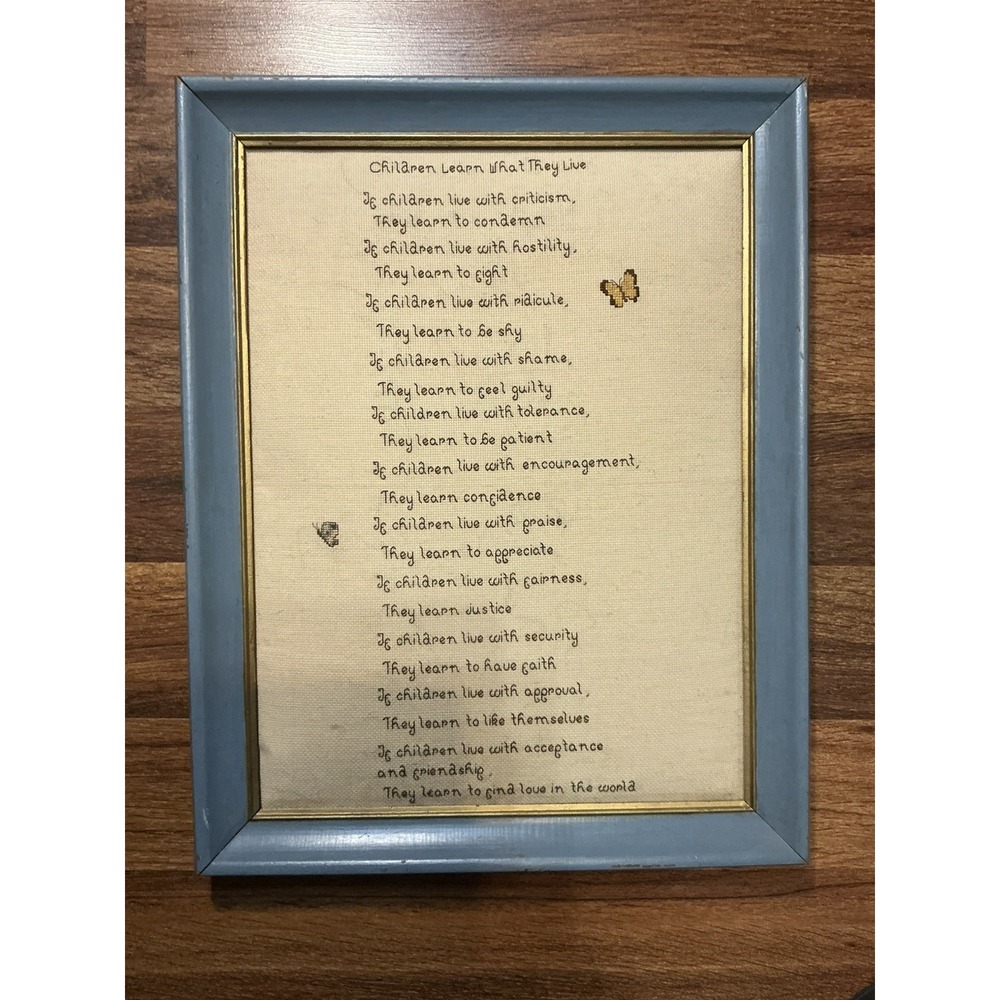 Children Learn What They Live
If children live with criticism,
They learn to condemn
If children live with hostility,
They learn to fight
If children live with ridicule,
They learn to be shy
If children live with shame,
They learn to feel guilty
If children live with tolerance,
They learn to be patient
If children live with encouragement,
They learn confidence
If children live with praise,
They learn to appreciate
If children live with fairness,
They learn Justice
If children live with security
They learn to have faith
If children live with approval,
They learn to like themselves
If children live with acceptance
and friendship,
They learn to find love in the world